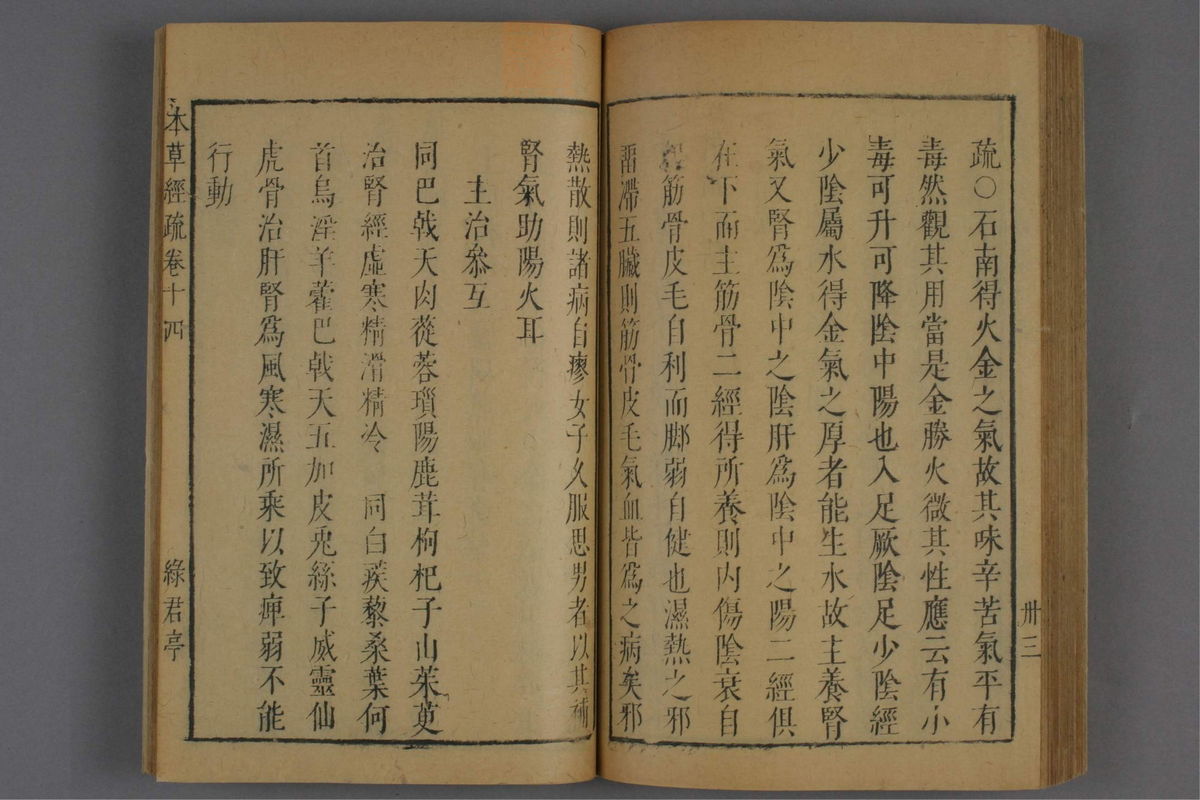 疏○石南得火金之氣故其味辛苦氣平有
毒然觀其用當是金勝火微其性應云有小
毒可升可降陰中陽也入足厥陰足少陰經
少陰屬水得金氣之厚者能生水故主養腎
氣又腎爲陰中之陰肝爲陰中之陽二經俱
在下而主筋骨二經得所養則內傷陰衰自
筋骨皮毛自利而脚弱自健也濕熱之邪
畱滯五臟則筋骨皮毛氣血皆爲之病矣邪
卅三
熱散則諸病自瘳女子久服思男者以其補
腎氣助陽火耳
主治叅互
同巴戟天肉蓯蓉瑣陽鹿茸枸杞子山茱萸
治腎經虛寒精滑精冷 同白蒺藜桑葉何
首烏淫羊藿巴戟天五加皮兎絲子威靈仙
虎骨治肝腎爲風寒濕所乘以致痺弱不能
行動
本草經疏卷十四 綠君亭